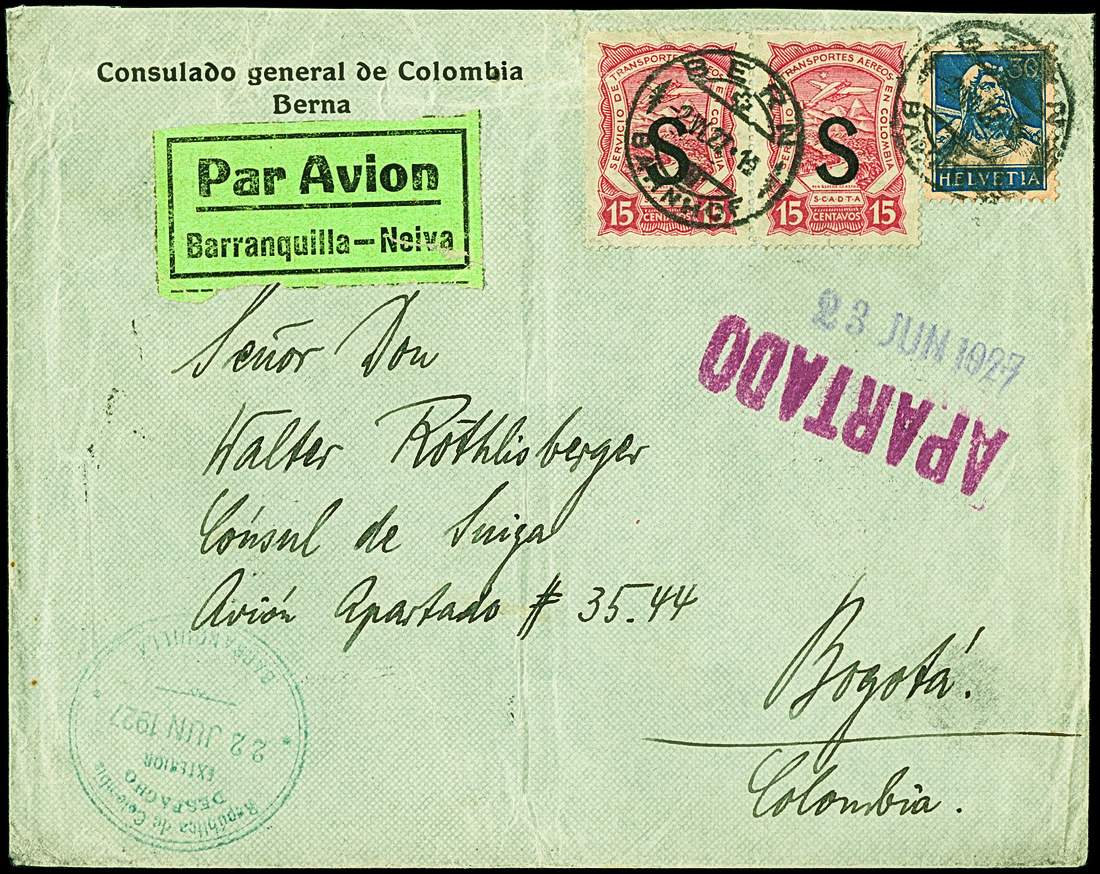 Consulado general de Colombia
Berna
Par Avion
Barranquilla—Neiva
SERVICIO DE TRANSPORTES AEREOS EN COLOMBIA
S
15 CENTAVOS 15
SERVICIO DE TRANSPORTES AÉREOS EN COLOMBIA
S
S·C·A·D·T·A
15 CENTAVOS 15
BERN
-2.VI.27.-15
BAHNHOF
30
HELVETIA
BERN
23 JUN 1927
APARTADO
Señor Don
Walter Röthlisberger
Cónsul de Suiza
Avión Apartado # 35.44
Bogotá.
Colombia.
República de Colombia
DESPACHO
EXTERIOR
22 JUN 1927
BARRANQUILLA